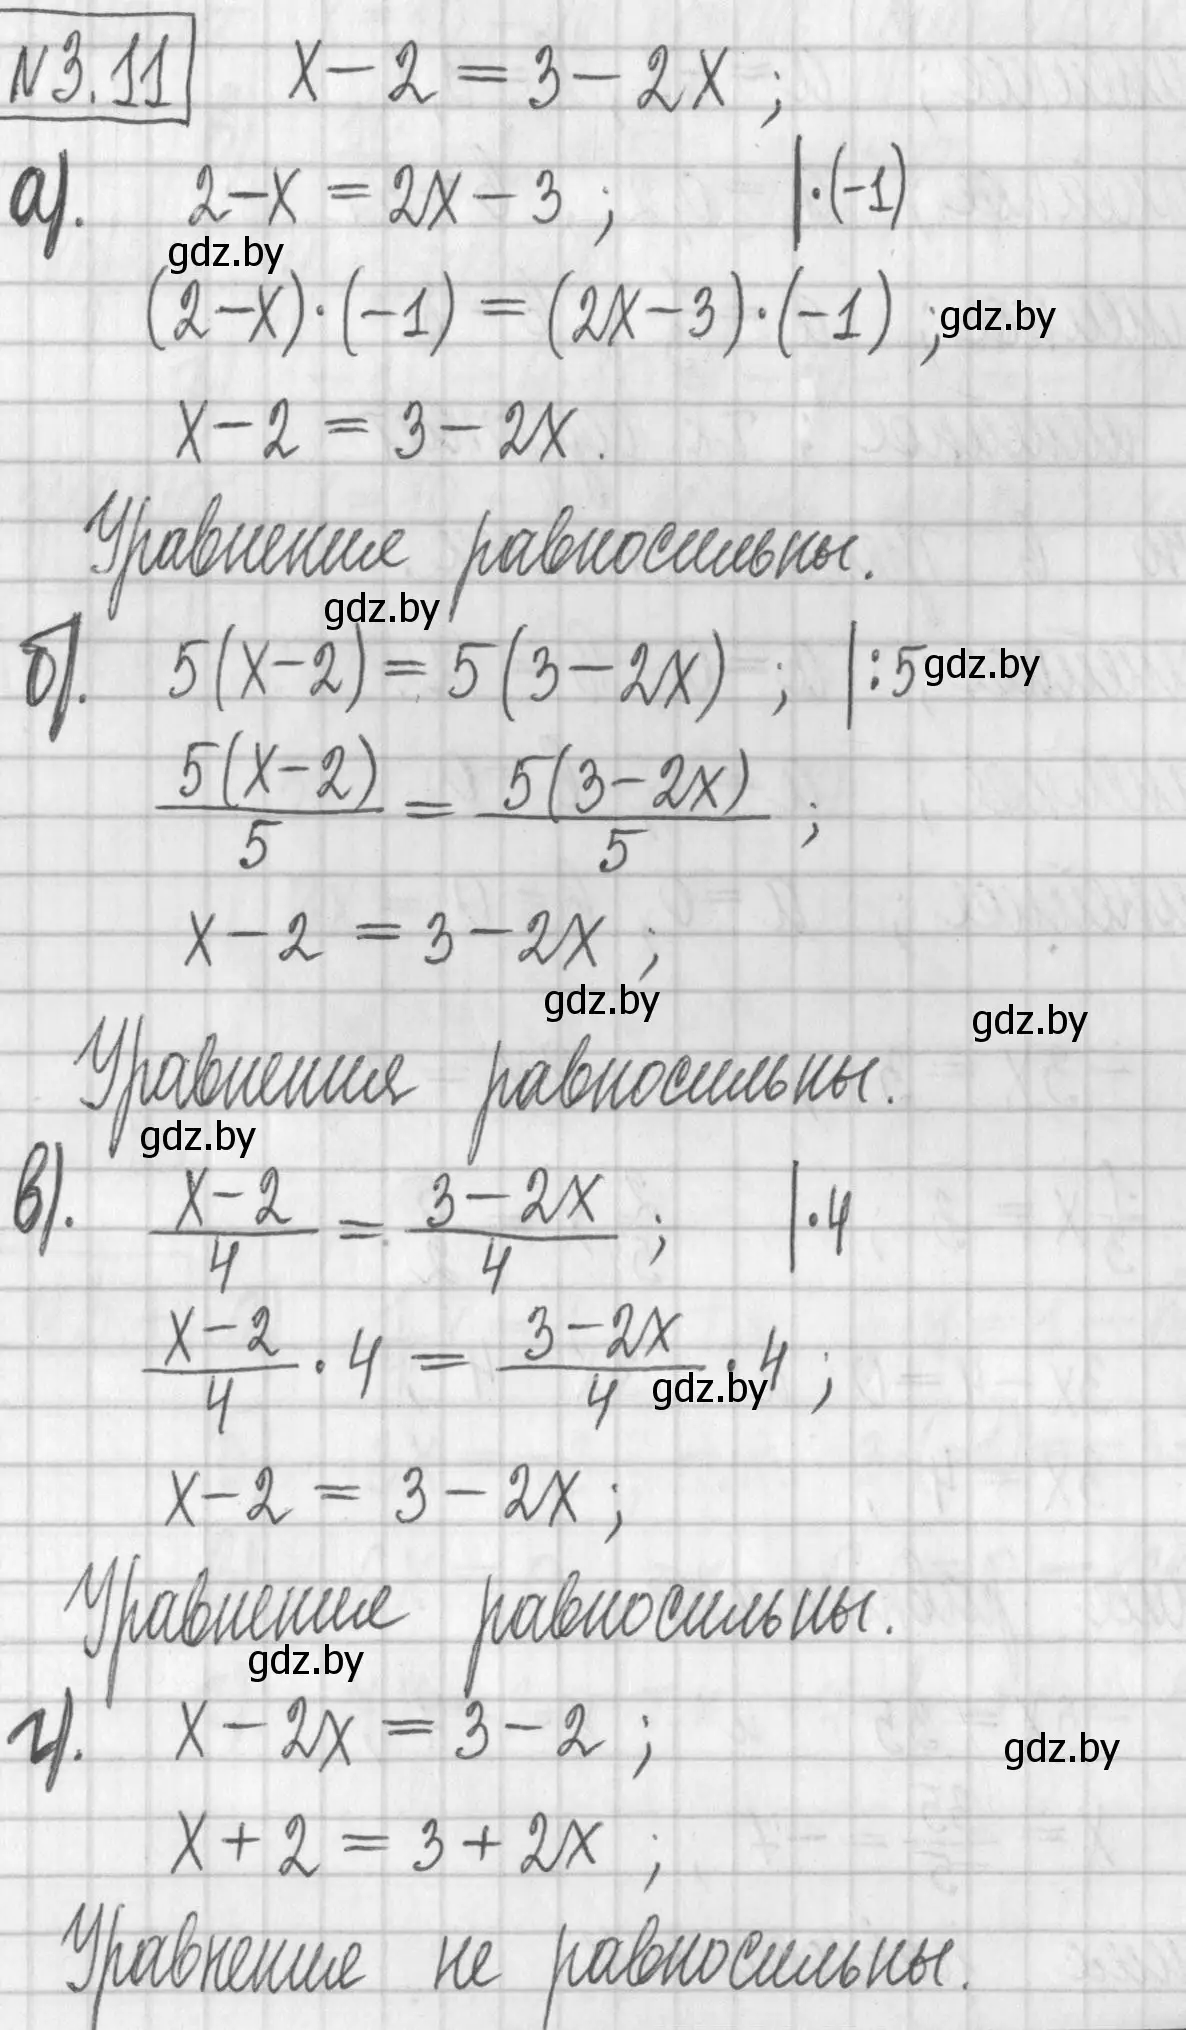 N3.11 x-2=3-2x;
а). 2-x=2x-3; |·(-1)
gdz.by
(2-x)·(-1)=(2x-3)·(-1); gdz.by
x-2=3-2x.
Уравнения равносильны.
gdz.by
б). 5(x-2)=5(3-2x); |:5 gdz.by
5(x-2)/5 = 5(3-2x)/5;
x-2=3-2x;
gdz.by gdz.by
Уравнения равносильны.
gdz.by
в). x-2/4 = 3-2x/4; |·4
x-2/4 · 4 = 3-2x/4 · 4;
gdz.by
x-2=3-2x;
Уравнения равносильны.
gdz.by
г). x-2x=3-2;
gdz.by
x+2=3+2x;
Уравнения не равносильны.